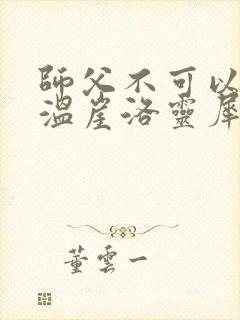 師父不可以
溫崖洛靈犀
董雲一